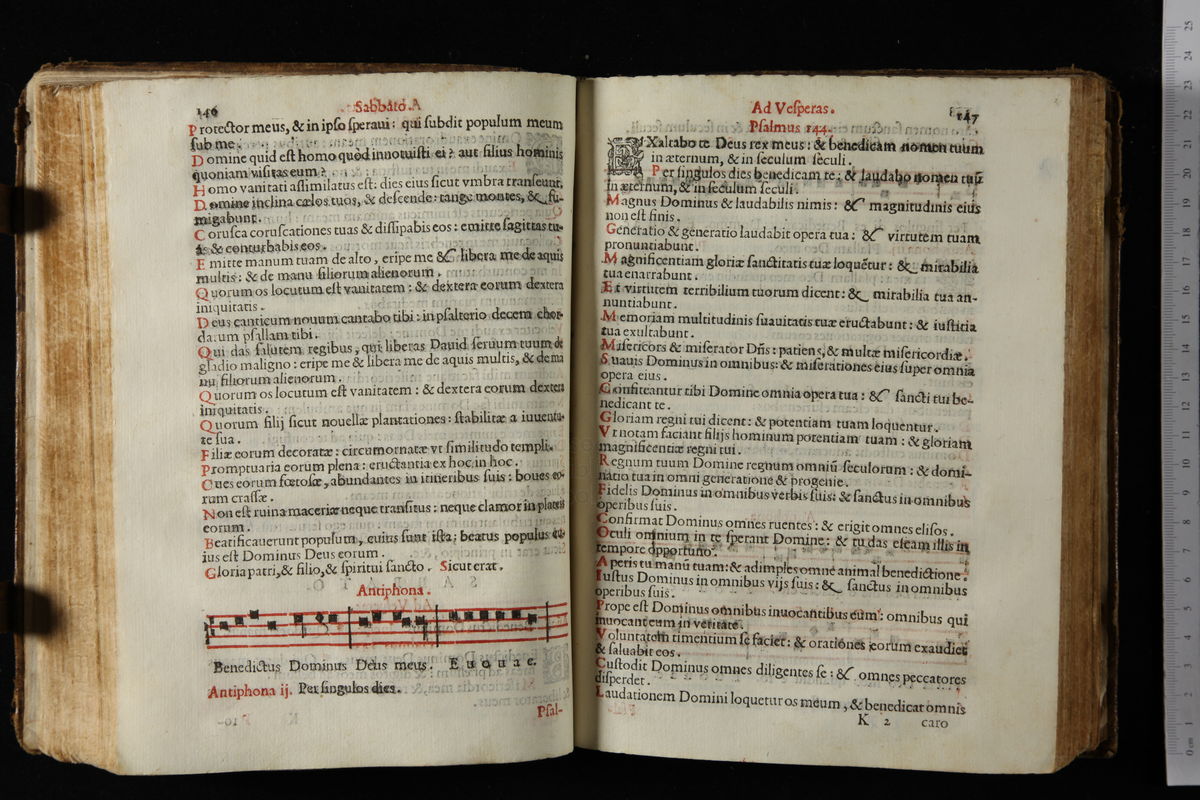 146
Sabbato. A
Protector meus, & in ipso speraui: qui subdit populum meum
sub me.
Domine quid est homo quòd innotuisti ei? aut filius hominis
quoniam visitas eum?
Homo vanitati assimilatus est: dies eius sicut vmbra transeunt.
Domine inclina cælos tuos, & descende: tange montes, & fu-
migabunt.
Corusca coruscationes tuas & dissipabis eos: emitte sagittas tu-
as & conturbabis eos.
Emitte manum tuam de alto, eripe me & libera me de aquis
multis: & de manu filiorum alienorum.
Quorum os locutum est vanitatem: & dextera eorum dextera
iniquitatis.
Deus canticum nouum cantabo tibi: in psalterio decem chor-
darum psallam tibi.
Qui das salutem regibus, qui liberas Dauid seruum tuum de
gladio maligno: eripe me & libera me de aquis multis, & de ma
nu filiorum alienorum.
Quorum os locutum est vanitatem: & dextera eorum dextera
iniquitatis.
Quorum filij sicut nouellæ plantationes: stabilitæ a iuuentu-
te sua.
Filiæ eorum decoratæ: circumornatæ vt similitudo templi.
Promptuaria eorum plena: eructantia ex hoc in hoc.
Oues eorum fœtosæ, abundantes in itineribus suis: boues eo-
rum crassæ.
Non est ruina maceriæ neque transitus: neque clamor in plateis
eorum.
Beatificauerunt populum, cuius sunt ista: beatus populus cu-
ius est Dominus Deus eorum.
Gloria patri, & filio, & spiritui sancto. Sicut erat.
Antiphona.
Benedictus Dominus Deus meus. E u o u a e.
Antiphona ij. Per singulos dies.
Psal-
Ad Vesperas.
147
Psalmus 144.
EXaltabo te Deus rex meus: & benedicam nomen tuum
in æternum, & in seculum seculi.
Per singulos dies benedicam te: & laudabo nomen tuũ
in æternum, & in seculum seculi.
Magnus Dominus & laudabilis nimis: & magnitudinis eius
non est finis.
Generatio & generatio laudabit opera tua: & virtutem tuam
pronuntiabunt.
Magnificentiam gloriæ sanctitatis tuæ loquẽtur: & mirabilia
tua enarrabunt.
Et virtutem terribilium tuorum dicent: & mirabilia tua an-
nuntiabunt.
Memoriam multitudinis suauitatis tuæ eructabunt: & iustitia
tua exultabunt.
Misericors & miserator Dñs: patiens, & multæ misericordiæ.
Suauis Dominus in omnibus: & miserationes eius super omnia
opera eius.
Confiteantur tibi Domine omnia opera tua: & sancti tui be-
nedicant te.
Gloriam regni tui dicent: & potentiam tuam loquentur.
Vt notam faciant filijs hominum potentiam tuam: & gloriam
magnificentiæ regni tui.
Regnum tuum Domine regnum omniũ seculorum: & domi-
natio tua in omni generatione & progenie.
Fidelis Dominus in omnibus verbis suis: & sanctus in omnibus
operibus suis.
Confirmat Dominus omnes ruentes: & erigit omnes elisos.
Oculi omnium in te sperant Domine: & tu das escam illis in
tempore opportuno.
Aperis tu manũ tuam: & adimples omne animal benedictione.
Iustus Dominus in omnibus vijs suis: & sanctus in omnibus
operibus suis.
Prope est Dominus omnibus inuocantibus eum: omnibus qui
inuocant eum in veritate.
Voluntatem timentium se faciet: & orationes eorum exaudiet
& saluabit eos.
Custodit Dominus omnes diligentes se: & omnes peccatores
disperdet.
Laudationem Domini loquetur os meum, & benedicat omnis
K 2 caro